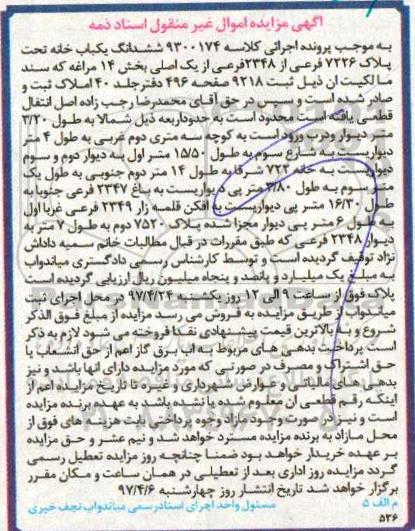 آگهی مزایده اموال غیر منقول اسناد ذمه
به موجب پرونده اجرائی کلاسه ۹۳۰۰۱۷۴ ششدانگ یکباب خانه تحت
پلاک ۷۲۲۶ فرعی از ۲۳۴۸ فرعی از یک اصلی بخش ۱۴ مراغه که سند
مالکیت ان ذیل ثبت ۹۲۱۸ صفحه ۴۹۶ دفتر جلد ۴۰ املاک ثبت و
صادر شده است و سپس در حق آقای محمدرضا رجب زاده اصل انتقال
قطعی یافته است محدود است به حدود اربعه ذیل شمالا به طول ۳/۲۰
متر دیوار و درب ورود است به کوچه سه متری دوم غربی به طول ۴ متر
دیواریست به شارع سوم به طول ۱۵/۵۰ متر اول به دیوار دوم و سوم
دیواریست به خانه ۷۲۲ شرقا به طول ۱۴ متر دوم جنوبی به طول یک
متر سوم به طول ۳/۸۰ متر پی دیواریست به باغ ۲۳۴۷ فرعی جنوبا به
طول ۱۶/۳۰ متر پی دیواریست به افکن قلمه زار ۲۳۴۹ فرعی غربا اول
به طول ۶ متر پی دیوار مجزا شده پلاک ۷۵۲۰ دوم به طول ۷ متر به
دیوار ۲۳۴۸ فرعی که طبق مقررات در قبال مطالبات خانم سمیه داداش
نژاد توقیف گردیده است و توسط کارشناس رسمی دادگستری میاندواب
به مبلغ یک میلیارد و پانصد و پنجاه میلیون ریال ارزیابی گردیده است
پلاک فوق از ساعت ۹ الی ۱۲ روز یکشنبه ۹۷/۴/۲۴ در محل اجرای ثبت
میاندواب از طریق مزایده به فروش می رسد مزایده از مبلغ فوق الذکر
شروع و به بالاترین قیمت پیشنهادی نقدا فروخته می شود لازم به ذکر
است پرداخت بدهی های مربوط به اب برق گاز اعم از حق انشعاب یا
حق اشتراک و مصرف در صورتی که مورد مزایده دارای انها باشد و نیز
بدهی های مالیاتی و عوارض شهرداری و غیره تا تاریخ مزایده اعم از
اینکه رقم قطعی ان معلوم شده یا نشده باشد به عهده برنده مزایده
است و نیز در صورت وجود مازاد وجوه پرداختی بابت هزینه های فوق از
محل مازاد به برنده مزایده مسترد خواهد شد و نیم عشر و حق مزایده
بر عهده خریدار خواهد بود ضمنا چنانچه روز مزایده تعطیل رسمی
گردد مزایده روز اداری بعد از تعطیلی در همان ساعت و مکان مقرر
برگزار خواهد شد تاریخ انتشار روز چهارشنبه ۹۷/۴/۶
م الف ۵ مسئول واحد اجرای اسناد رسمی میاندواب نجف خیری
۵۳۶